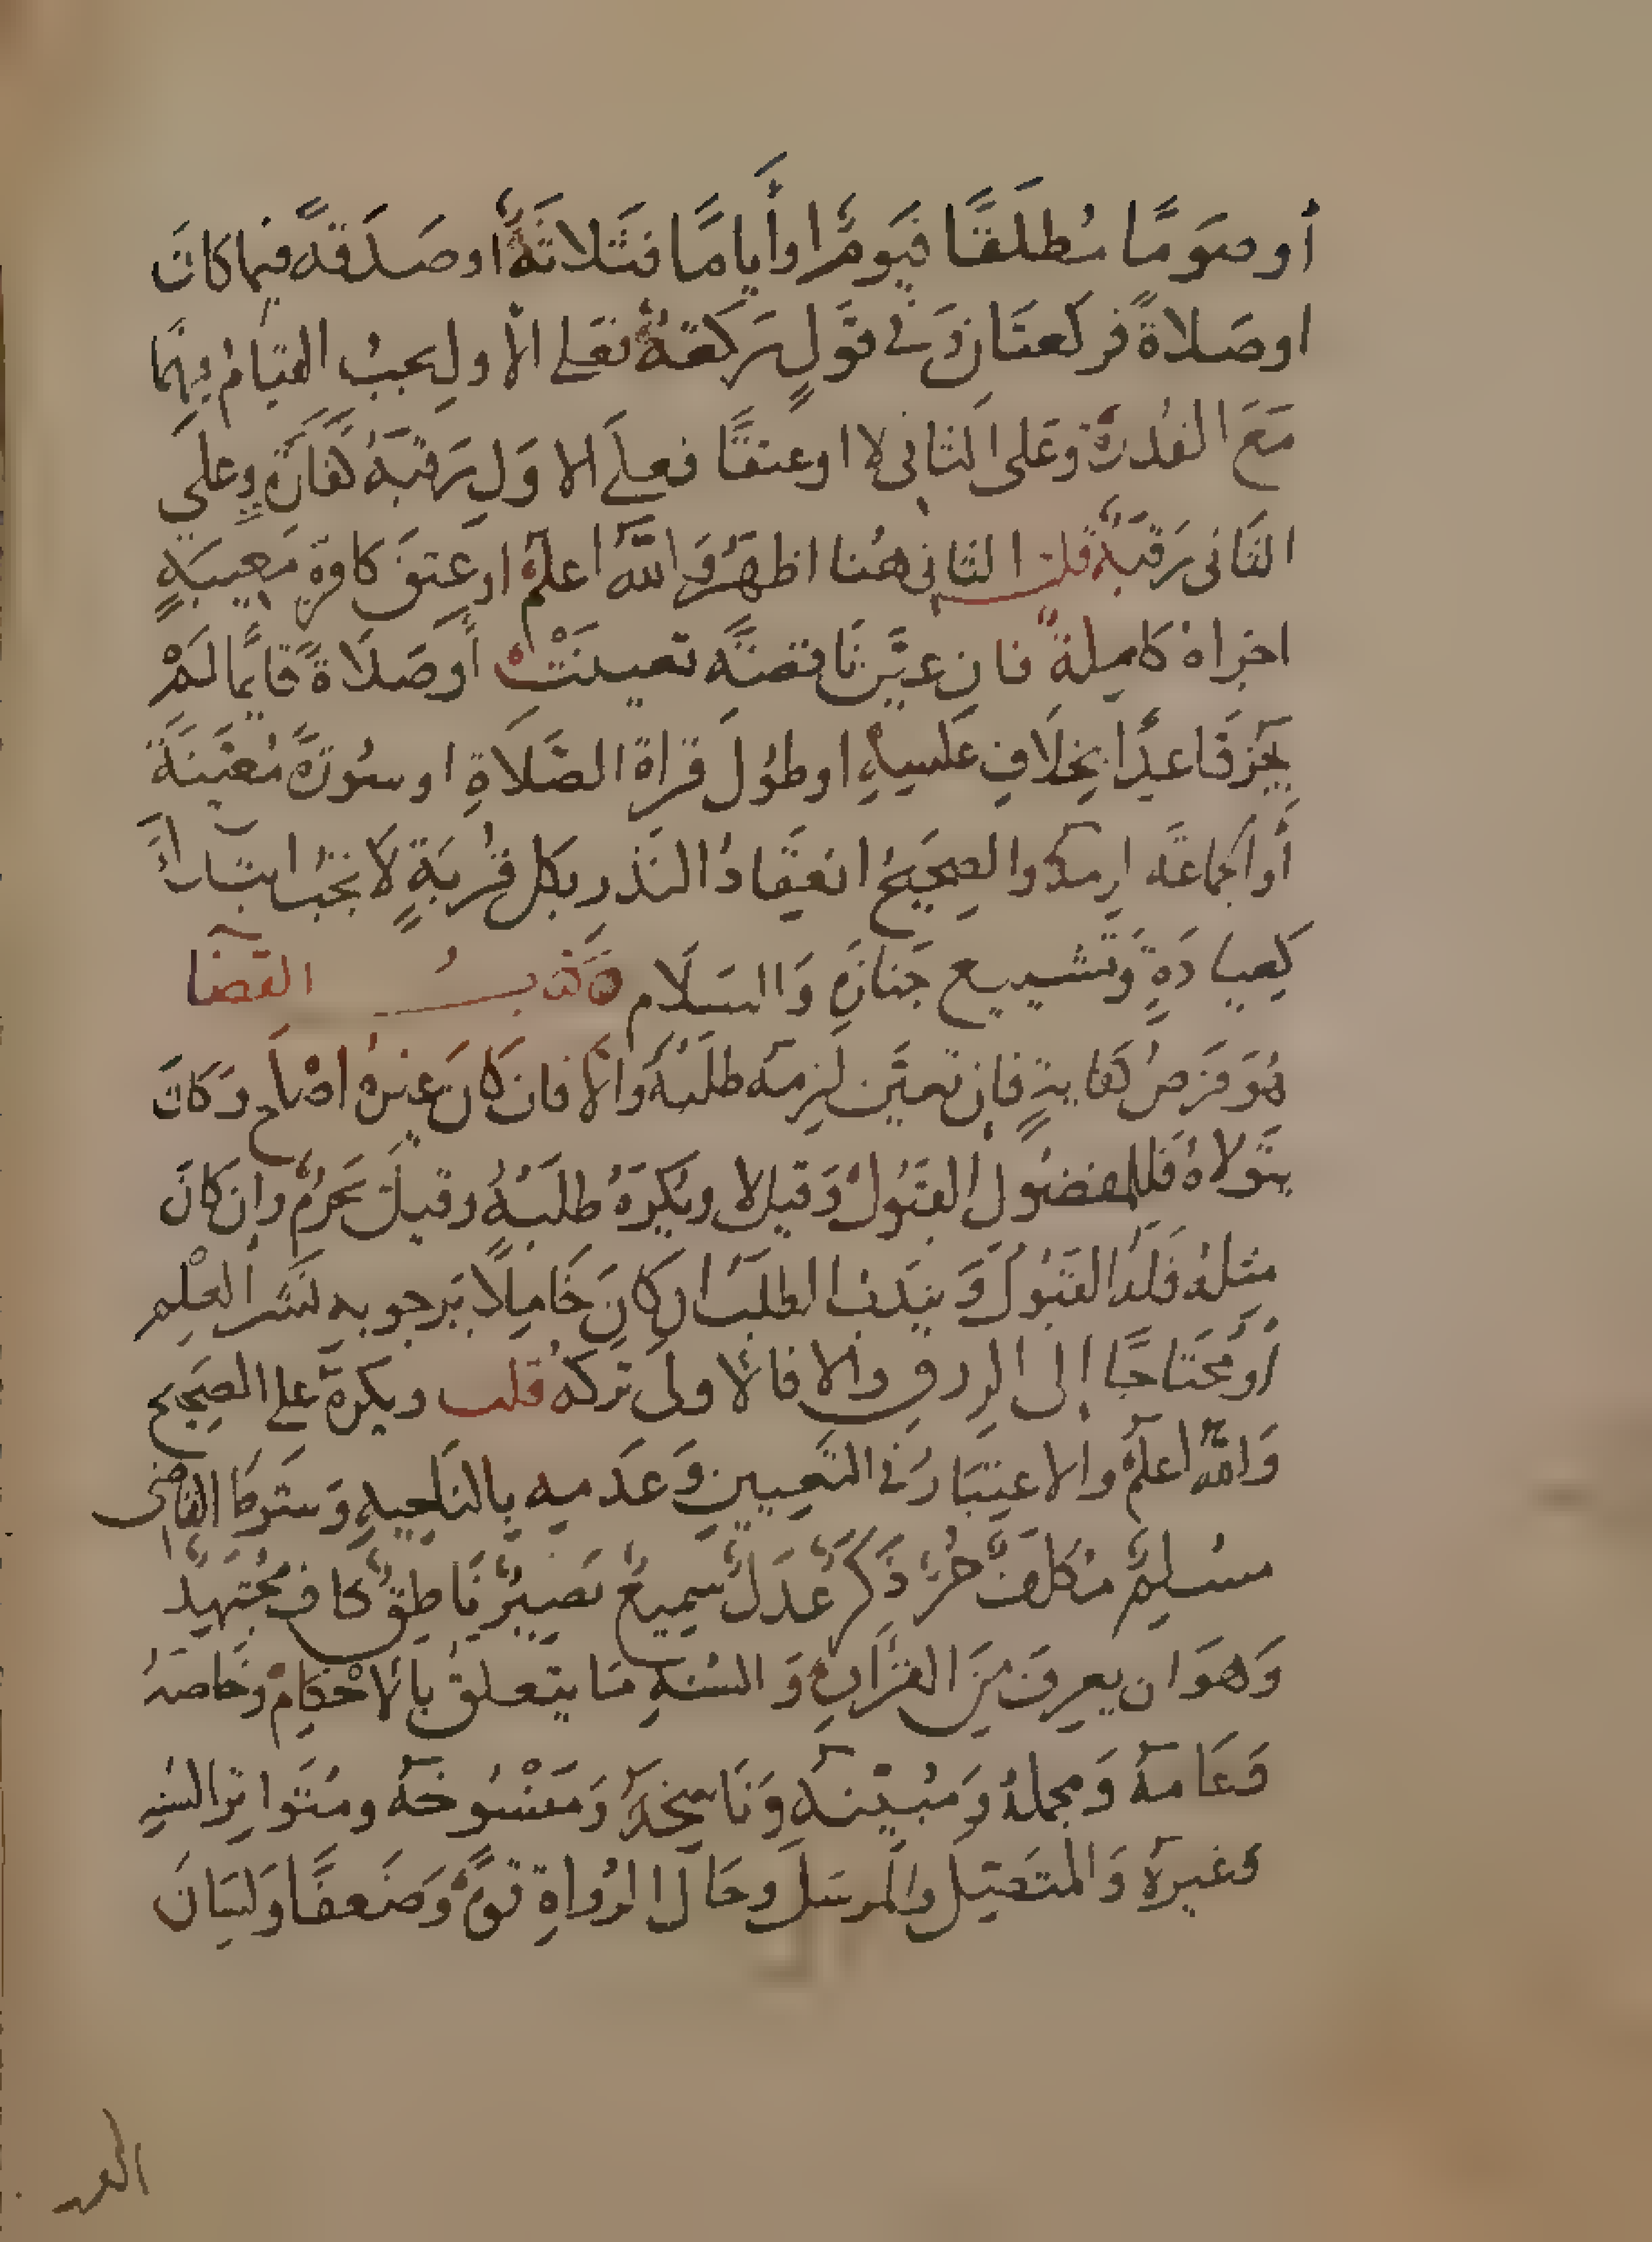 أو صَومًا مُطلَقًا فيَومٌ او أَيامًا فثَلاثَةٌ او صَدَقةً فبما كانَ
او صَلاةً فركعتَان وَفي قَولٍ رَكعَةٌ فعَلى الأول يجبُ القيَامُ فيهما
مَعَ القُدرَة وَعَلى الثانى لا او عتقًا فعلَى الاوَلِ رَقبَةُ كفَارَةٍ وعلى
الثَانى رَقبَةٌ قلت الثانى هُنا اظهَرُ وَالله اعلمُ او عتقَ كافرةٍ مَعيبَةٍ
اجزاهُ كامِلةٌ فان عيَّن ناقصَةً تعينَتْ أو صَلَاةً قايمًا لَمْ
يَجُز قاعدًا بخِلَافِ عَكسِهِ او طُولَ قراة الصَّلَاةِ او سُورَةً مُعَيَنَةً
أَو الجماعَة لزمهُ والصحيحُ انعِقَادُ النَذر بكل قُربَةٍ لَا تجبُ ابتدَاءً
كعِيادَةٍ وَتَشييع جَنازَةٍ وَالسَلَام كتابُ القَضَا
هُوَ فَرضُ كفايةٍ فان تعيَّن لَزِمَهُ طلَبُهُ وَالا فان كانَ غيرهُ اصْلَح وَكانَ
يتَولاهُ فللمفضُول القبُولُ وَقيل لا ويُكرَهُ طلَبُهُ وقيلَ يَحرُمُ وان كانَ
مثلهُ فَلَهُ القبُولُ وَيندبُ الطلَبُ ان كانَ خَامِلًا يَرجو به نَشرَ العِلْمِ
أَو مُحتَاجًا إلى الرزق والا فالاولى تركهُ قلت ويكرهُ على الصَحيح
وَاللهُ اعلمُ والاعتِبَارُ في التَعيينِ وَعَدَمِه بالنَاحِيةِ وَشرطُ القَاضى
مُسْلِمٌ مُكلفٌ حُرٌّ ذَكَرٌ عَدلٌ سَمِيعٌ بَصيرٌ نَاطِقٌ كافٍ مُجتَهِدٌ
وَهوَ ان يعرفَ مِنَ القُرآنِ وَ السُنةِ مَا يتَعلقُ بالاحْكامِ وَخاصَهُ
وَعَامهُ وَمجملهُ وَمُبَيَّنَهُ وَنَاسِخَهُ وَمَنْسُوخهُ ومُتَواترَ السُنةِ
وغيرهُ وَالمتَصِل والمرسَلَ وحَالَ الرُواةِ قوةً وَضَعفًا وَلسَانَ
العر